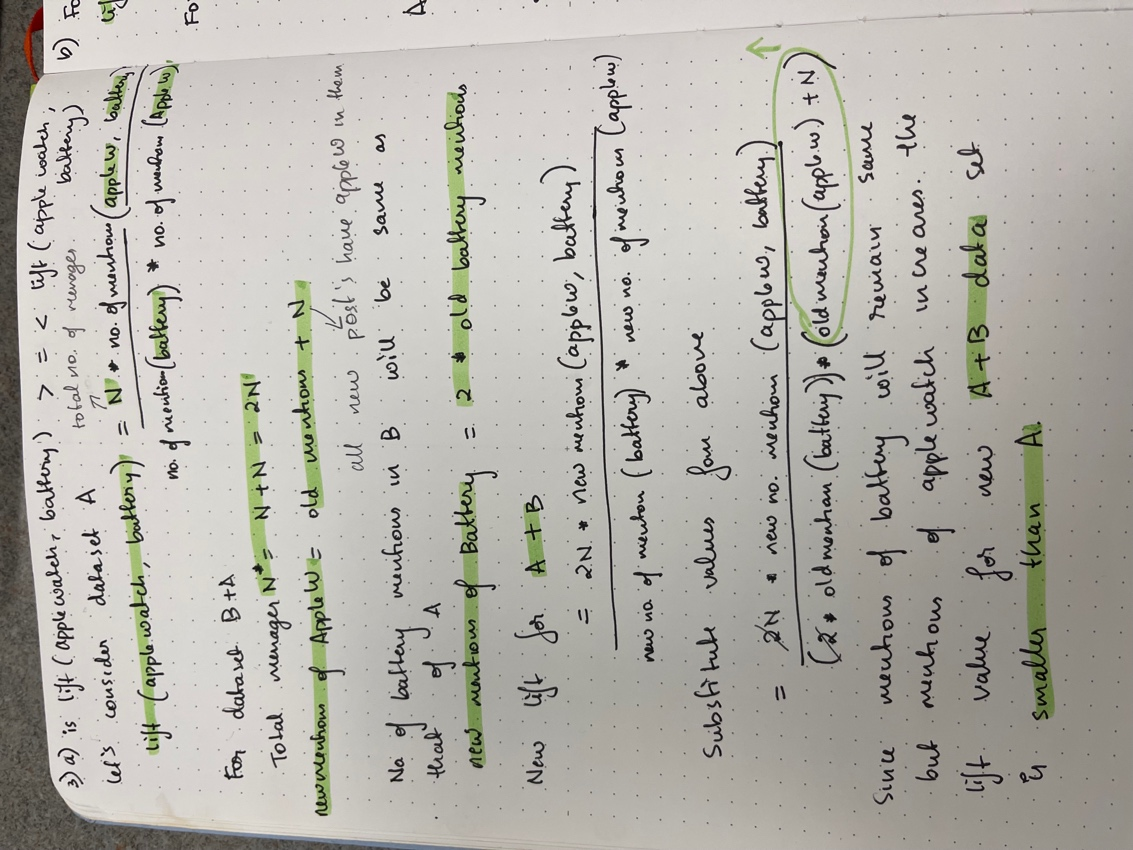 3) a) is lift (applewatch, battery) > = < lift (apple watch, battery)
let's consider dataset A
total no. of messages
lift (apple watch, battery) = N * no. of mentions (applew, battery)
no. of mention (battery) * no. of mention (Applew)
For dataset B+A
Total messages N* = N + N = 2N
new mentions of Apple W = old mentions + N
all new post's have applew in them
No of battery mentions in B will be same as
that of A
new mentions of Battery = 2 * old battery mentions
New lift for A + B
= 2N * new mention (applew, battery)
new no. of mention (battery) * new no. of mention (applew)
Substitute values from above
= 2N * new no. mention (applew, battery)
(2 * old mention (battery)) * (old mention (applew) + N)
Since mentions of battery will remain same
but mentions of apple watch increases. the
lift value for new A + B data set
is smaller than A.
b) Fo
lif
Fo
A